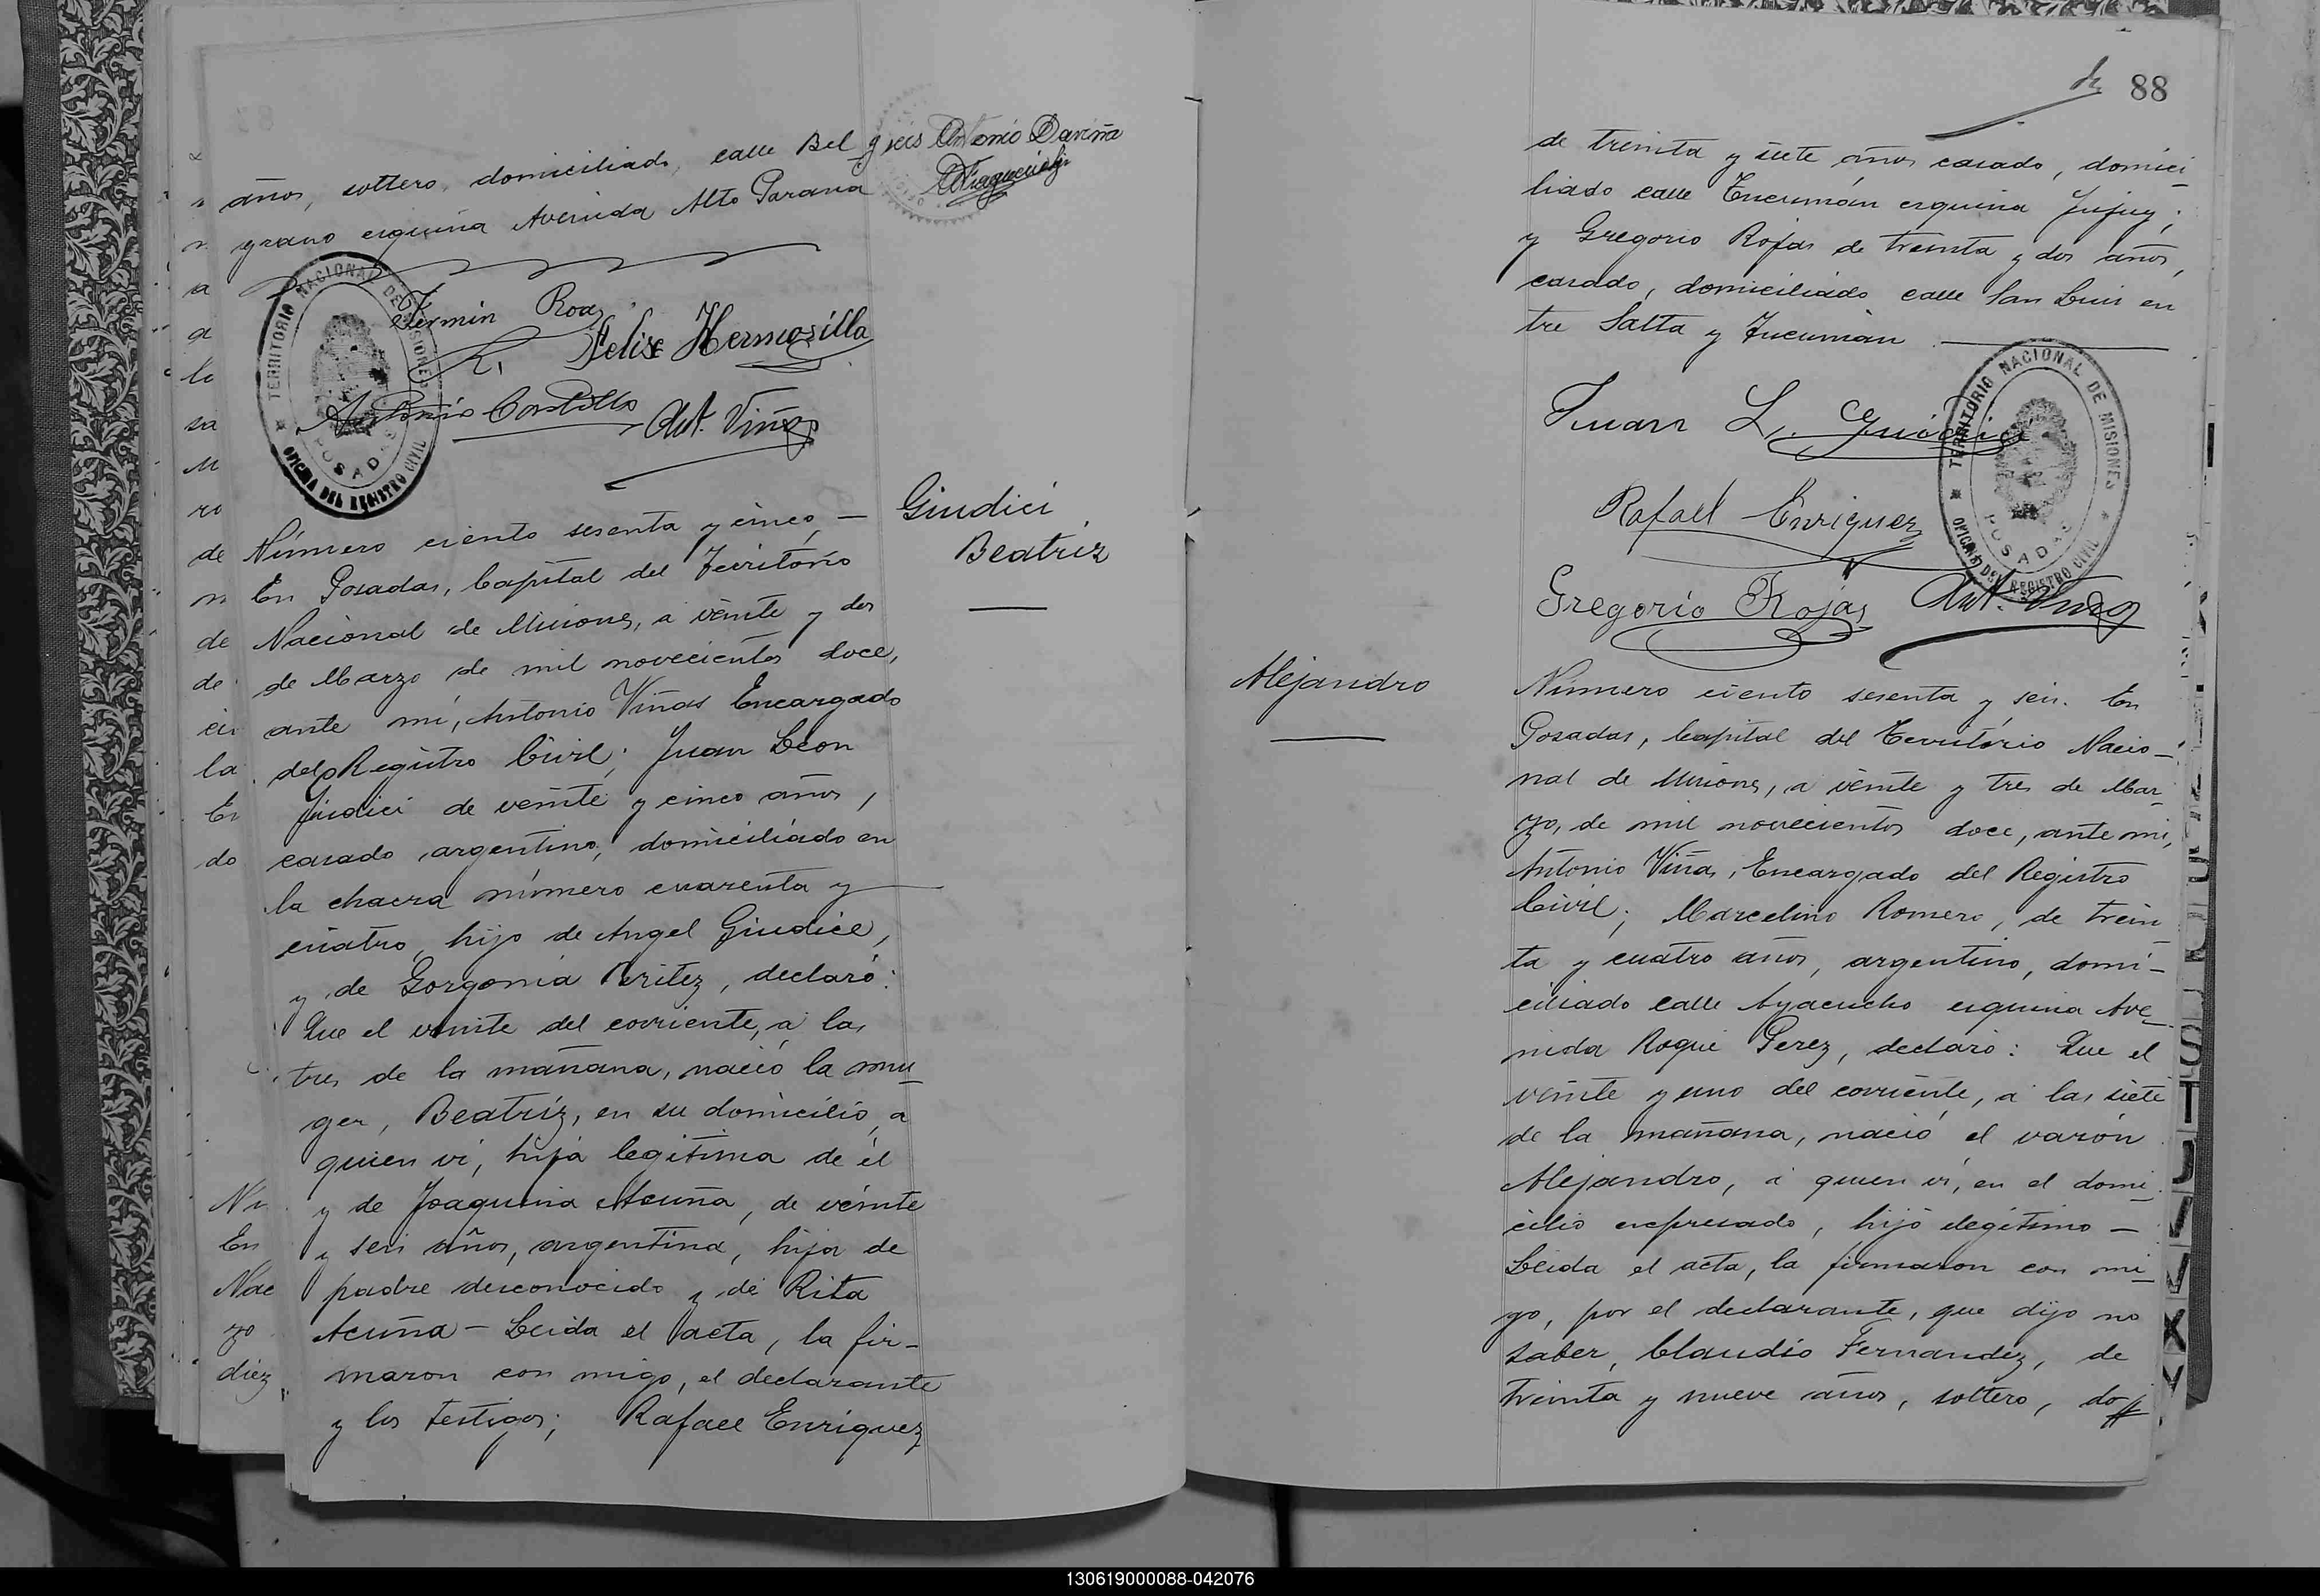 años, soltero, domiciliado, calle Bel
grano esquina Avenida Alto Parana
Antonio
Fermin Roa
Felix Hermosilla
Antonio Castillo Ant. Viñas
TERRITORIO NACIONAL DE MISIONES
POSADAS
OFICINA DEL REGISTRO CIVIL
Giudici
Beatriz
Número ciento sesenta y cinco, —
En Posadas, Capital del Territorio
Nacional de Misiones, a veinte y dos
de Marzo de mil novecientos doce,
ante mi, Antonio Viñas Encargado
del Registro Civil; Juan Leon
Giudici de veinte y cinco años,
casado argentino, domiciliado en
la chacra número cuarenta y
cuatro, hijo de Angel Giudice,
y de Gorgonia Britez, declaró:
Que el veinte del corriente, a las
tres de la mañana, nació la mu-
ger, Beatriz, en su domicilio, a
quien vi, hija legitima de él
y de Joaquina Acuña, de veinte
y seis años, argentina, hija de
padre desconocido y de Rita
Acuña — Leida el acta, la fir-
maron con migo, el declarante
y los testigos; Rafael Enriquez
a
a
lo
sa
M
ro
de
m
de
de
la
En
do
Nu
En
Nac
zo
diez
88
de treinta y siete años casado, domici-
liado calle Tucumán esquina Jujuy;
y Gregorio Rojas de treinta y dos años,
casado, domiciliado calle San Luis en
tre Salta y Tucumán
Juan L. Giudici
Rafael Enriquez
Gregorio Rojas Ant. Viñas
TERRITORIO NACIONAL DE MISIONES
POSADAS
OFICINA DEL REGISTRO CIVIL
Alejandro
Número ciento sesenta y seis. En
Posadas, Capital del Territorio Nacio-
nal de Misiones, a veinte y tres de Mar-
zo, de mil novecientos doce, ante mi,
Antonio Viñas, Encargado del Registro
Civil; Marcelino Romero, de trein
ta y cuatro años, argentino, domi-
ciliado calle Ayacucho esquina Ave-
nida Roque Perez, declaró: Que el
veinte y uno del corriente, a las siete
de la mañana, nació el varón
Alejandro, a quien vi, en el domi-
cilio expresado, hijo ilegitimo —
Leida el acta, la firmaron con mi-
go, por el declarante, que dijo no
saber, Claudio Fernandez, de
treinta y nueve años, soltero, do
S
T
U
V
X
Y
130619000088-042076